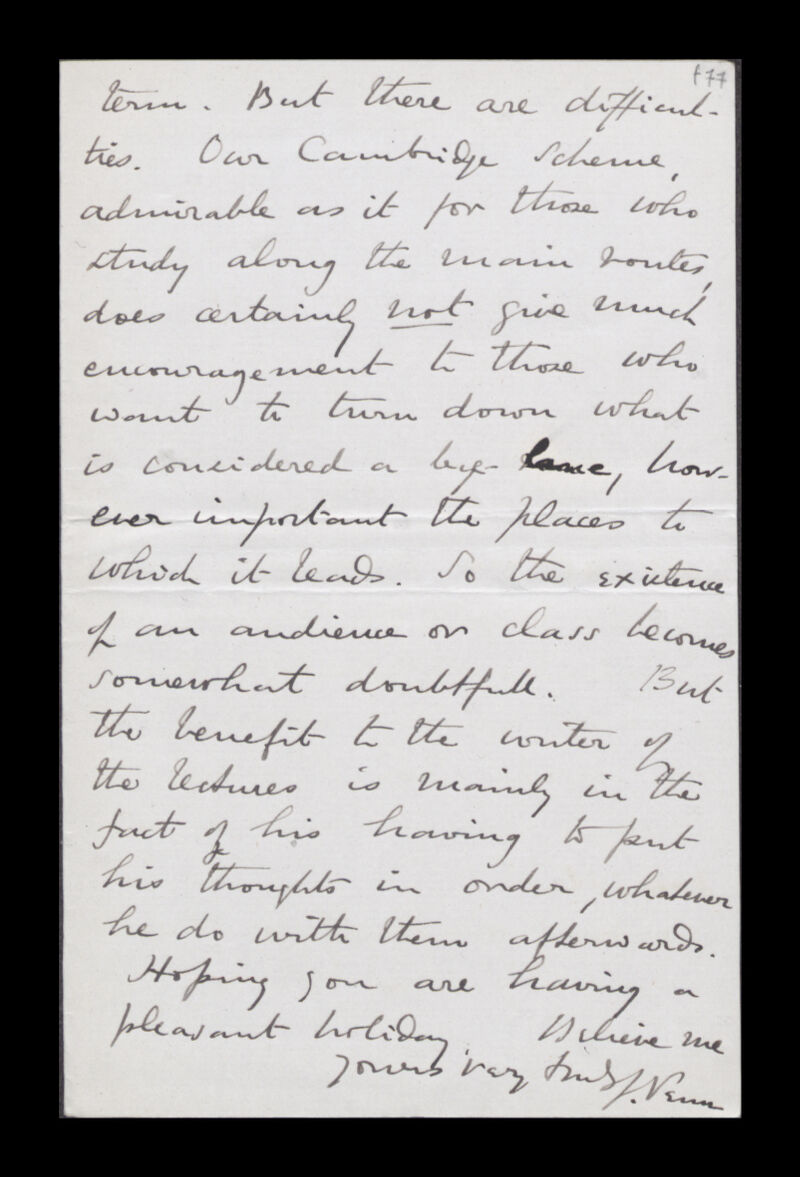 f77
term. But there are difficul-
ties. Our Cambridge Scheme,
admirable as it for those who
study along the main routes,
does certainly not give much
encouragement to those who
want to turn down what
is considered a bye-lane, how-
ever important the places to
which it leads. So the existence
of an audience or class becomes
somewhat doubtfull. But
the benefit to the writer of
the lectures is mainly in the
fact of his having to put
his thoughts in order, whatever
he do with them afterwards.
Hoping you are having a
pleasant holiday. Believe me
yours very truly J. Venn